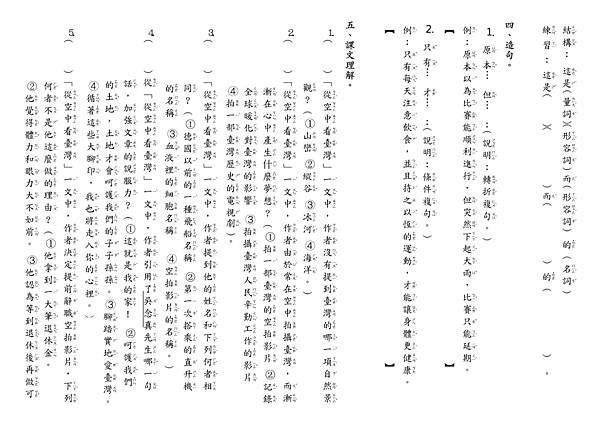 結構：這是(量詞)(形容詞)而(形容詞)的(名詞)
練習：這是(　)(　　　)而(　　　)的(　　　)。
四、造句。
1. 原本…但…：(說明：轉折複句。)
例：原本以為比賽能順利進行，但突然下起大雨，比賽只能延期。
【　　　　　　　　　　　　　　　　　　】
2. 只有…才…：(說明：條件複句。)
例：只有每天注意飲食，並且持之以恆的運動，才能讓身體更健康。
【　　　　　　　　　　　　　　　　　　】
五、課文理解。
1. (　)「從空中看臺灣」一文中，作者沒有提到臺灣的哪一項自然景
觀？(①山巒 ②縱谷 ③冰河 ④海洋。)
2. (　)「從空中看臺灣」一文中，作者由於常在空中拍攝臺灣，而漸
漸在心中產生什麼夢想？(①拍一部臺灣的空拍影片 ②記錄
全球暖化對臺灣的影響 ③拍攝臺灣人民辛勤工作的影片
④拍一部臺灣歷史的電視劇。)
3. (　)「從空中看臺灣」一文中，作者提到他的姓名和下列何者相
同？(①德國以前的一種飛船名稱 ②第一次搭乘的直升機
的名稱 ③血液裡的細胞名稱 ④空拍影片的名稱。)
4. (　)從「從空中看臺灣」一文中，作者引用了吳念真先生哪一句
話，加強文章的說服力？(①這就是我的家！ ②呵護我們
的土地，土地才會呵護我們的子子孫孫。 ③腳踏實地愛臺灣。
④循著這些大腳印，我也將走入你的心裡。)
5. (　)「從空中看臺灣」一文中，作者決定提前辭職空拍影片，下列
何者不是他這麼做的理由？(①他拿到一大筆退休金。
②他覺得體力和眼力大不如前。 ③他認為等到退休後再做可